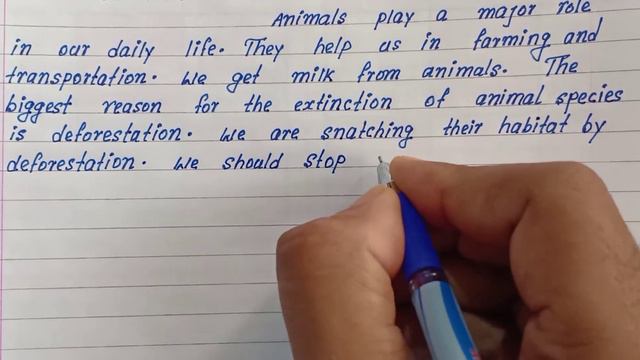 Animals play a major role
in our daily life. They help us in farming and
transportation. We get milk from animals. The
biggest reason for the extinction of animal species
is deforestation. We are snatching their habitat by
deforestation. We should stop